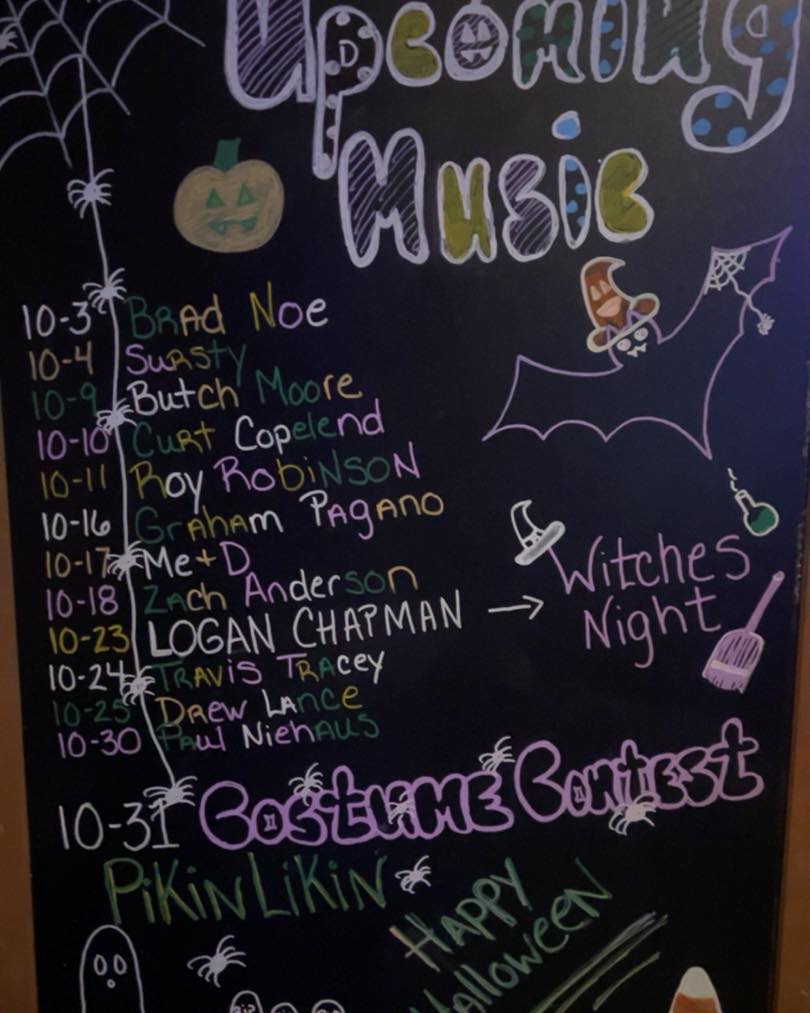 Upcoming
Music
10-3 Brad Noe
10-4 Sursty
10-9 Butch Moore
10-10 Curt Copelend
10-11 Roy Robinson
10-16 Graham Pagano
10-17 Me+D
10-18 Zach Anderson
10-23 LOGAN CHAPMAN → Witches Night
10-24 Travis Tracey
10-25 Drew Lance
10-30 Paul Niehaus
10-31 Costume Contest
PiKiN LiKiN
HAPPY
Halloween